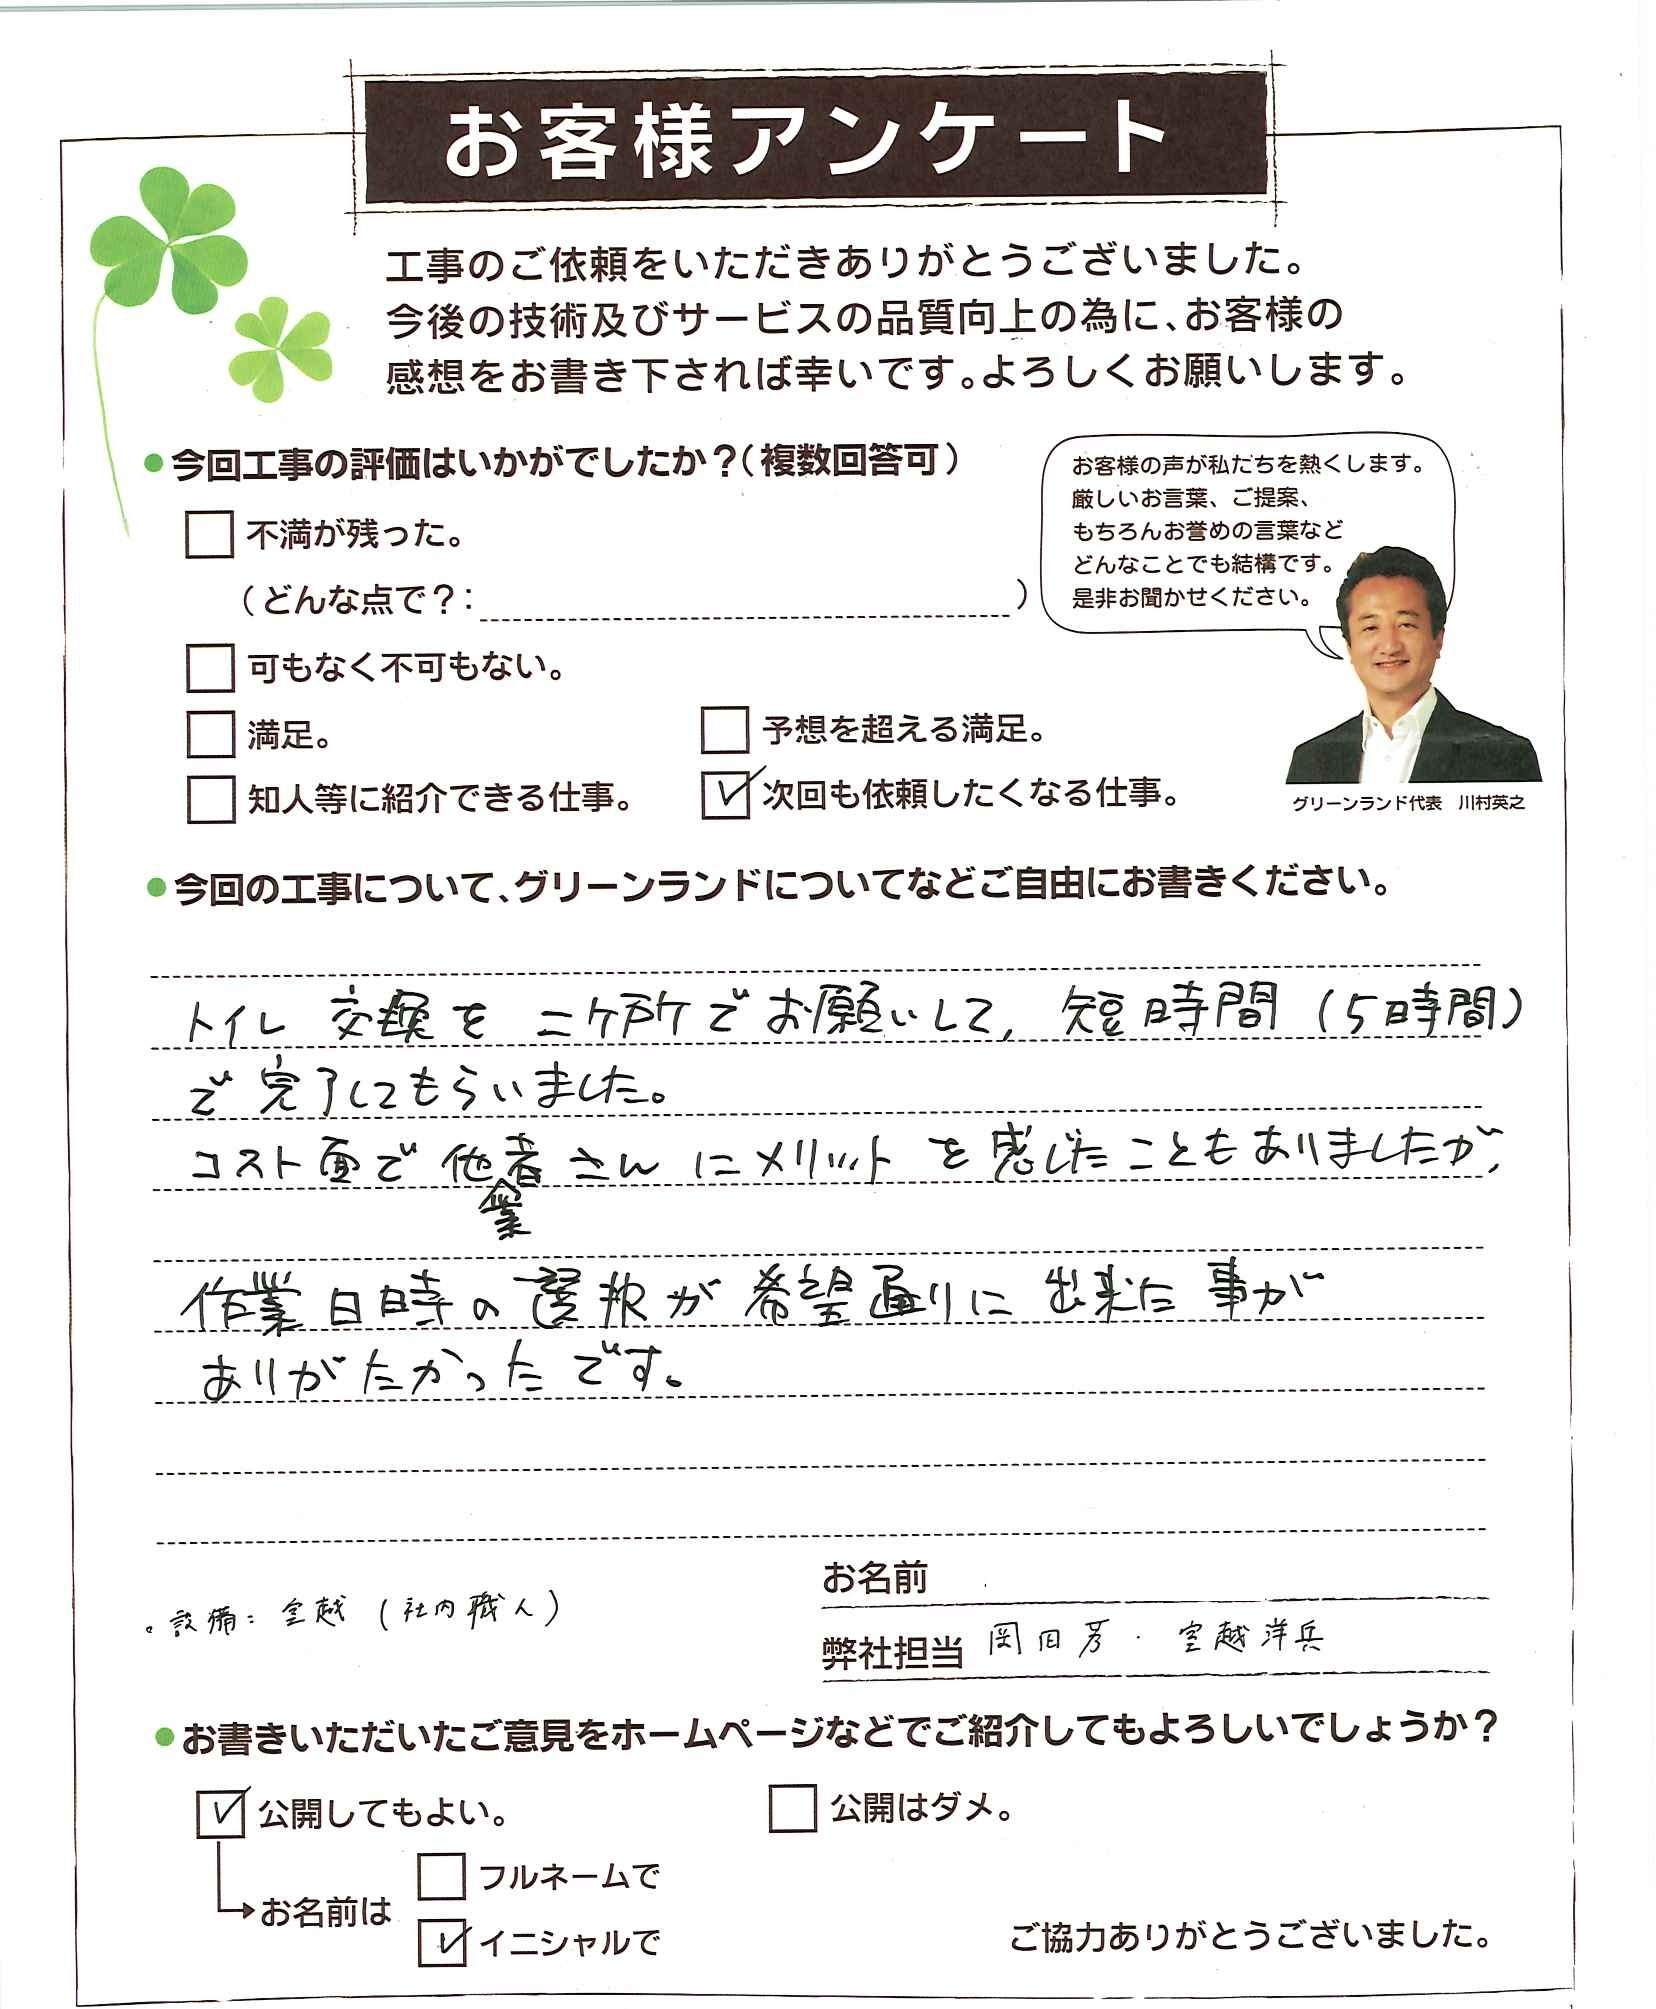 お客様アンケート
工事のご依頼をいただきありがとうございました。
今後の技術及びサービスの品質向上の為に、お客様の
感想をお書き下されば幸いです。よろしくお願いします。
●今回工事の評価はいかがでしたか？（複数回答可）
不満が残った。
（どんな点で？：　）
可もなく不可もない。
満足。
予想を超える満足。
知人等に紹介できる仕事。
次回も依頼したくなる仕事。
お客様の声が私たちを熱くします。
厳しいお言葉、ご提案、
もちろんお誉めの言葉など
どんなことでも結構です。
是非お聞かせください。
グリーンランド代表　川村英之
●今回の工事について、グリーンランドについてなどご自由にお書きください。
トイレ交換を二ケ所ケでお願いして、短時間（5時間）
で完了してもらいました。
コスト面で他者さんにメリットを感じたこともありましたが、
業
作業日時の選択が希望通りに出来た事が
ありがたかったです。
お名前
。設備：室越（社内職人）
弊社担当 岡田芳・室越洋兵
●お書きいただいたご意見をホームページなどでご紹介してもよろしいでしょうか？
公開してもよい。
公開はダメ。
フルネームで
お名前は
イニシャルで
ご協力ありがとうございました。